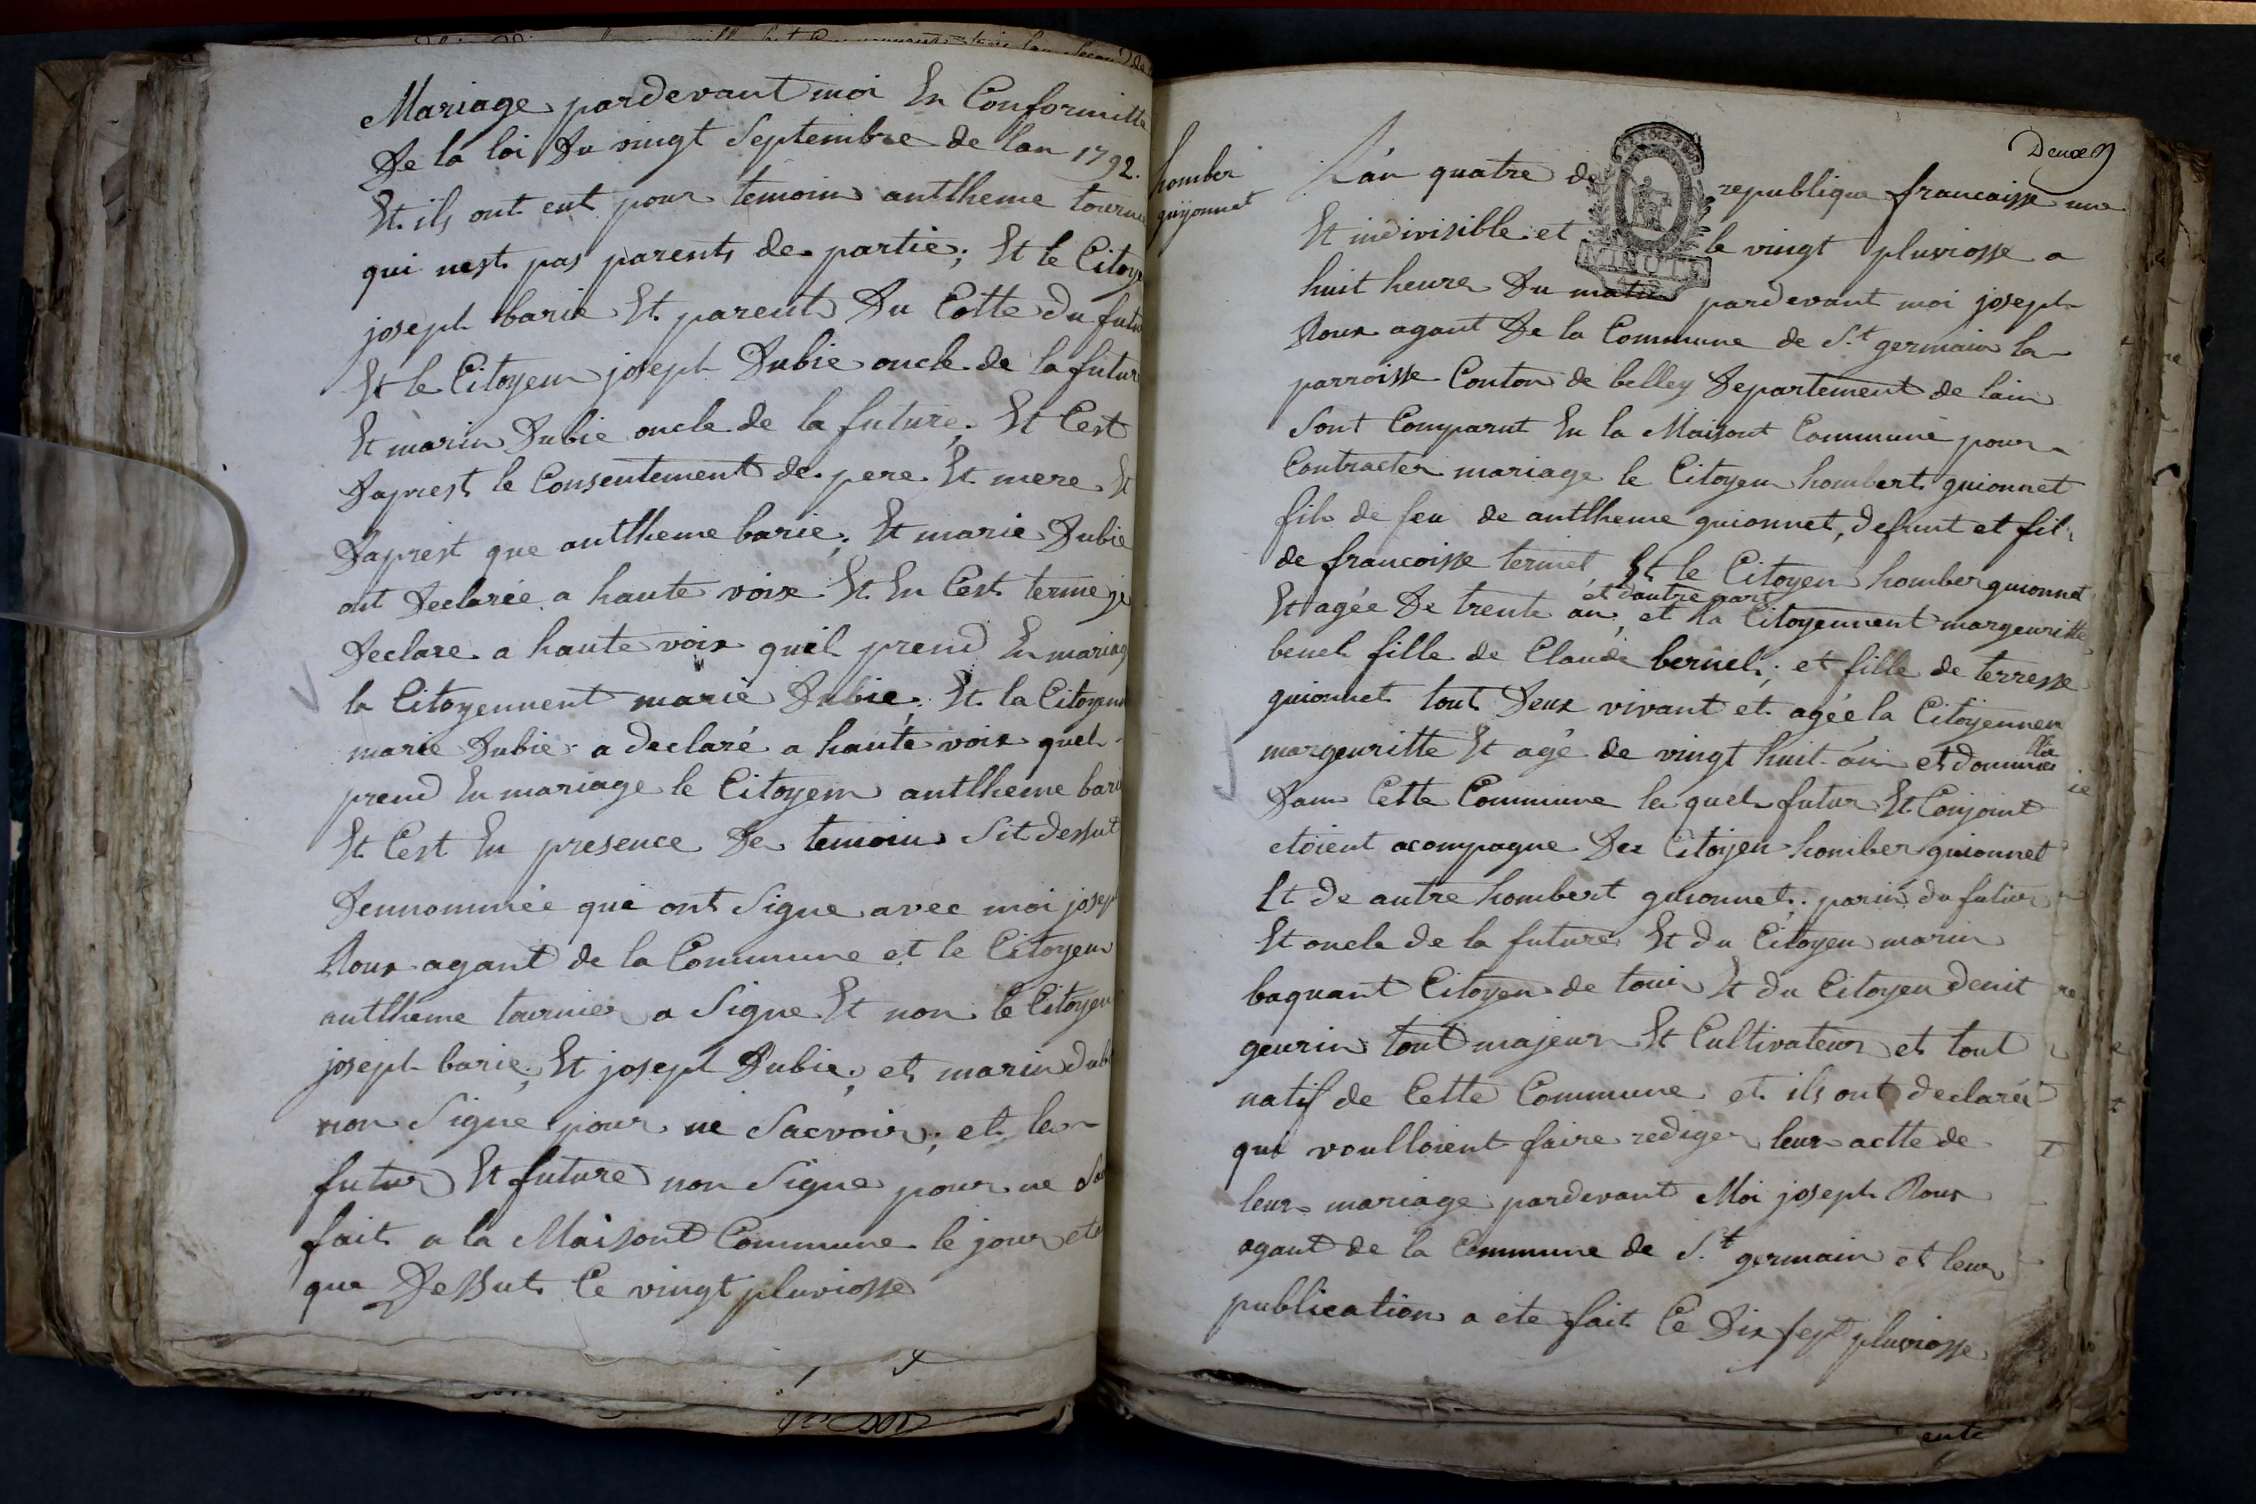 Mariage pardevant moi En Conformitte
De la loi Du vingt Septembre de lan 1792.
Et ils ont eut pour temoin antlheme tournie
qui nest pas parents de partie; Et le Citoye
joseph barie Et parent Du Cotte du futu
Et le Citoyen joseph Dubie oncle de la future
Et marin Dubie oncle de la future; Et Cest
Daprest le Consentement de pere Et mere Et
Daprest que antlheme barie; Et marie Dubie
ont Declarée a haute voix Et En Cest terme je
Declare a haute voix quil prend En mariag
la Citoyennent marie Dubie; Et la Citoyenn
marie Dubie a declaré a haute voix quel
prend En mariage le Citoyen antlheme bari
Et Cest En presence De temoin Sit dessut
Dennommée qui ont Signe avec moi josep
Roux agant de la Commune et le Citoyen
antlheme tournier a Signe Et non le Citoyen
joseph barie; Et joseph Dubie; et marin dub
non Signe pour ne Sacvoir; et le
futur Et future non Signe pour ne Sa
fait a la Maisont Commune le jour et
que Dessut Ce vingt pluviosse
homber
guiyonnet
Deuxe
Lán quatre de republique francaisse une
Et indivisible et le vingt pluviosse a
MINUTE
huit heure Du matin pardevant moi joseph
Roux agant De la Commune de S.t germain la
parroisse Conton de belley Departement de lain
Sont Comparut En la Maisont Commune pour
Contracter mariage le Citoyen hombert guionnet
fils de feu de antlheme guionnet, defunt et fils
de francoisse termet Et le Citoyen homber guionnet
et dautre part
Et agée De trente an, et la Citoyennent margeuritte
benel fille de Claude bernel; et fille de terresse
guionnet tout Deux vivant et agée la Citoyennen
margeuritte Et agé de vingt huit an et domicilie
Dans Cette Commune le quel futur Et Conjoint
etoient acompagne Dez Citoyen homber guionnet
Et de autre hombert guionnet; parin du futur
Et oncle de la future Et du Citoyen marin
baquant Citoyen de toui Et du Citoyen denit
geurin tout majeur Et Cultivateur et tout
natif de Cette Commune et ils ont declaréé
qui voulloient faire rediger leur actte de
leur mariage pardevant Moi joseph Roux
agant de la Commune de S.t germain et leur
publication a ete fait Ce Dix sept pluviosse